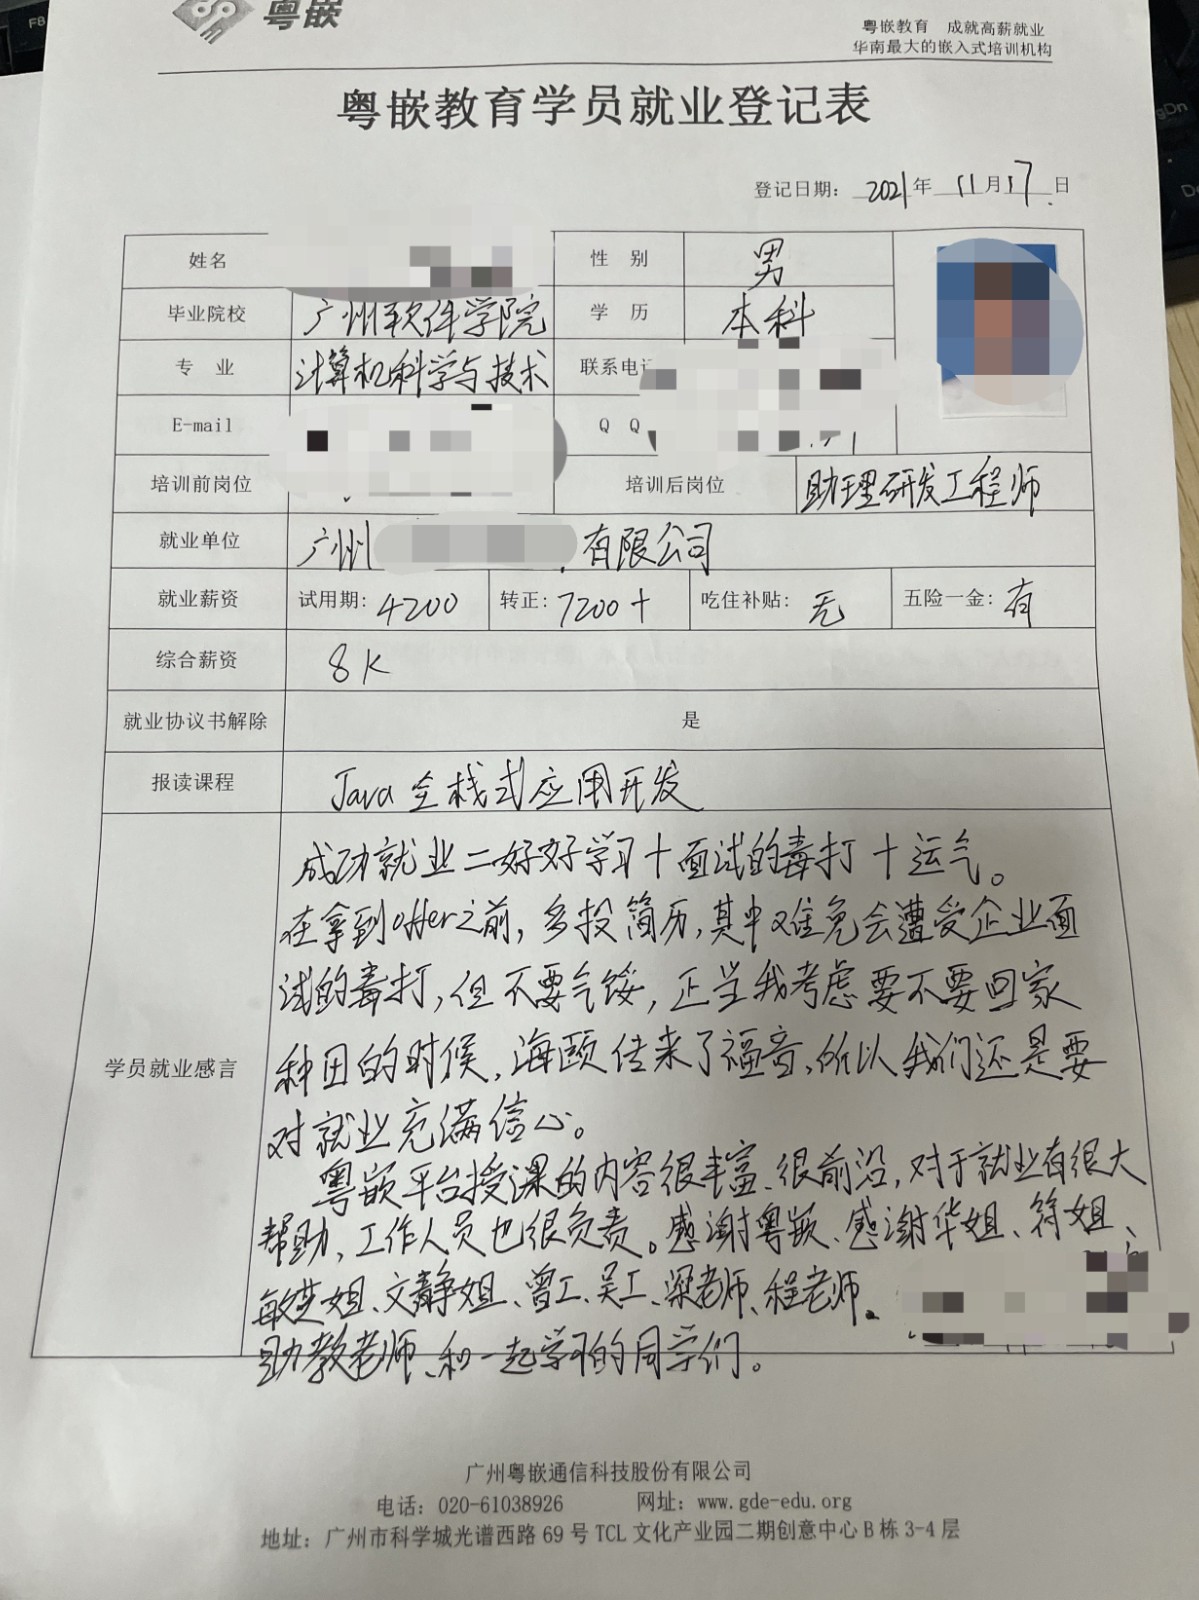 粤嵌
粤嵌教育 成就高薪就业
华南最大的嵌入式培训机构
粤嵌教育学员就业登记表
登记日期: 2021年 11月17日
姓名
性 别 男
毕业院校 广州软件学院 学 历 本科
专 业 计算机科学与技术 联系电
E-mail Q Q
培训前岗位 培训后岗位 助理研发工程师
就业单位 广州 有限公司
就业薪资 试用期: 4200 转正: 7200+ 吃住补贴: 无 五险一金: 有
综合薪资 8K
就业协议书解除 是
报读课程 Java全栈式应用开发
成功就业=好好学习+面试的毒打+运气。
在拿到offer之前,多投简历,其中难免会遭受企业面
试的毒打,但不要气馁,正当我考虑要不要回家
学员就业感言 种田的时候,海颐传来了福音,所以我们还是要
对就业充满信心。
粤嵌平台授课的内容很丰富、很前沿,对于就业有很大
帮助、工作人员也很负责。感谢粤嵌、感谢华姐、符姐、
敏芝姐、文静姐、曾工、吴工、梁老师、程老师、
助教老师、和一起学习的同学们。
广州粤嵌通信科技股份有限公司
电话: 020-61038926 网址: www.gde-edu.org
地址: 广州市科学城光谱西路69号TCL文化产业园二期创意中心B栋3-4层
F8